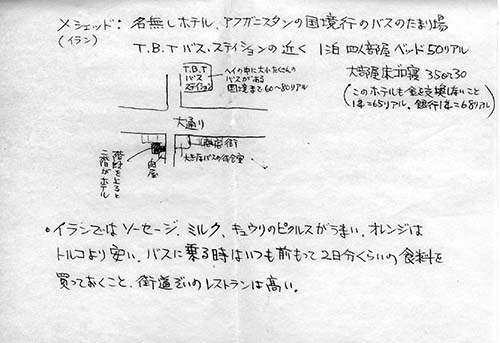 メシェッド： 名無しホテル、アフガニスタンの国境行のバスのたまり場
(イラン)
T.B.T バス・ステイションの近く 1泊 四人部屋ベッド 50リアル
大部屋床ゴロ寝 35〜30
(このホテルも金を交換しないこと
1＄=65リアル. 銀行1＄=68リアル)
T.B.T
バス
ステイション
ヘイの中に大小たくさんの
バスがある
国境まで60〜80リアル
大通り
商店街
大衆バスの待合室
肉屋
階段を上ると
二階がホテル
・イランではソーセージ、ミルク、キュウリのピクルスがうまい、オレンジは
トルコより安い、バスに乗る時はいつも前もって2日分くらいの食料を
買っておくこと、街道ぞいのレストランは高い。